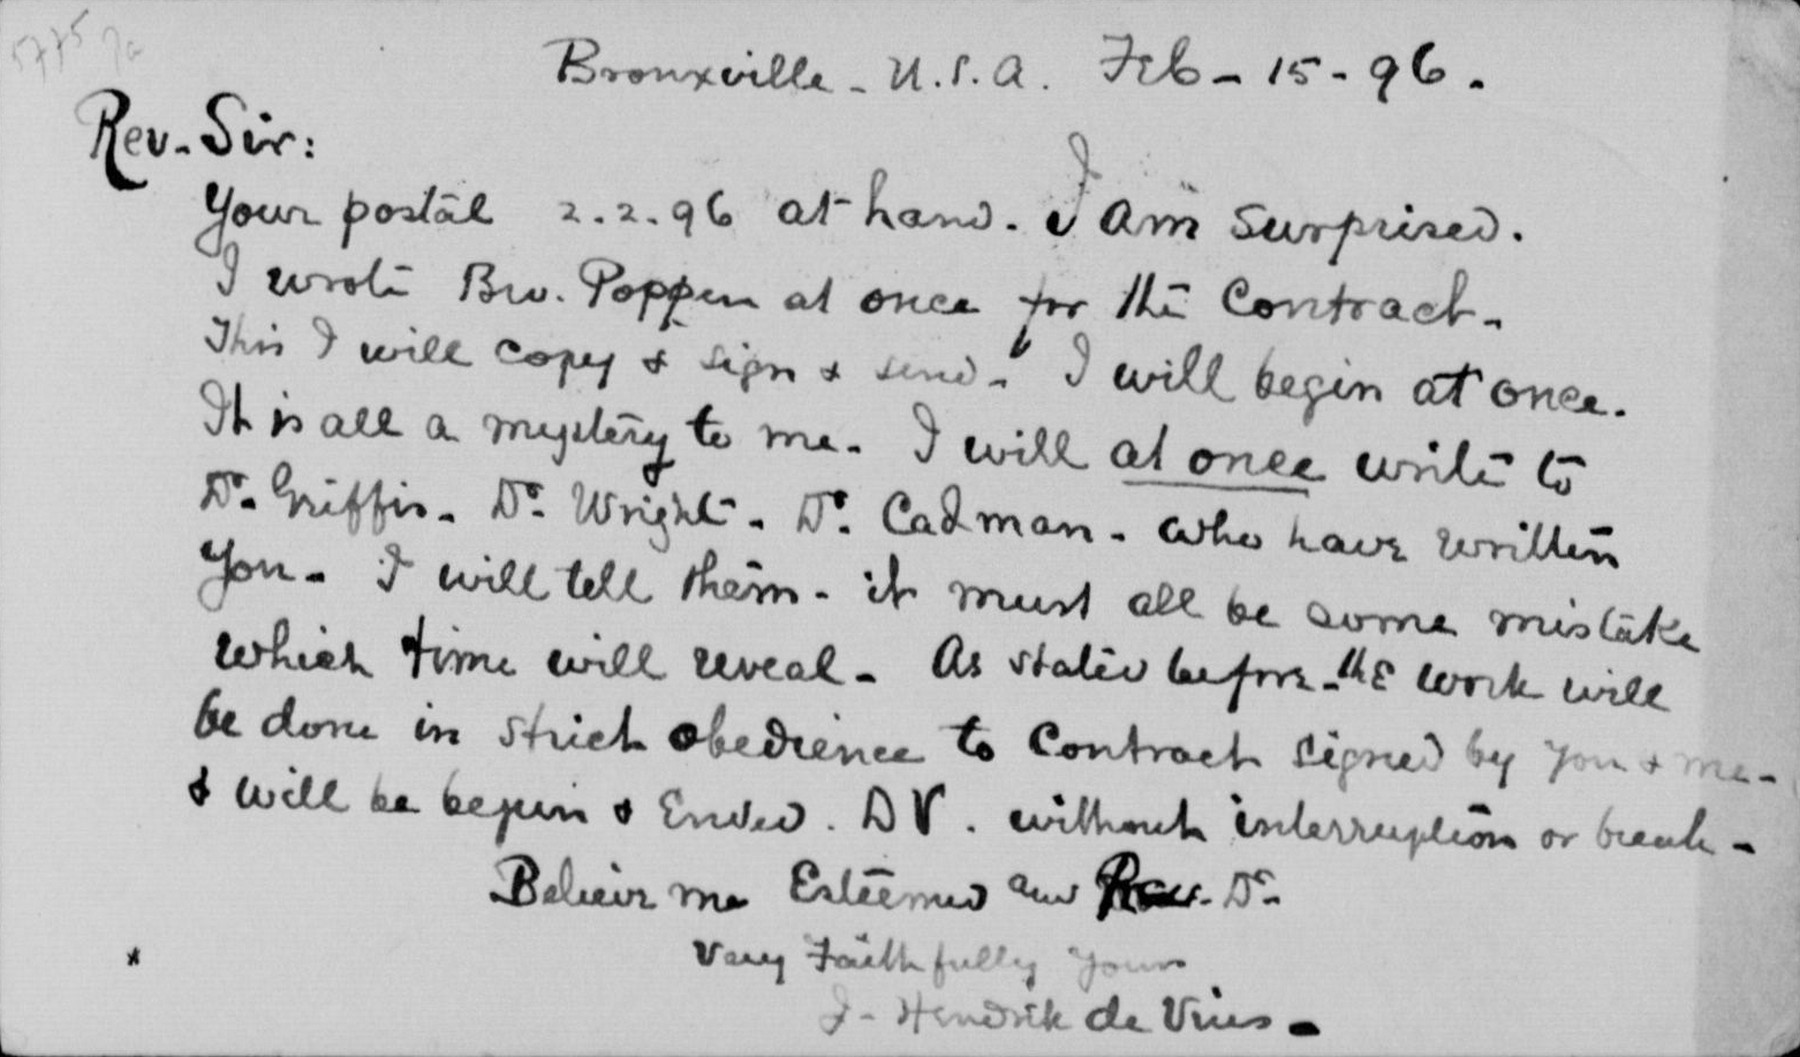 5775 7a
Bronxville - U.S.A. Feb - 15 - 96.
Rev. Sir:
Your postal 2.2.96 at hand. I am surprised.
I wrote Bro. Poppen at once for the contract -
This I will copy & sign & send - I will begin at once.
It is all a mystery to me - I will at once write to
Dr. Griffis - Dr. Wright - Dr. Cadman - who have written
you - I will tell them - it must all be some mistake
which time will reveal - As stated before - the work will
be done in strict obedience to contract signed by you & me -
& will be begun & ended. D V. without interruption or break -
Believe me Esteemed and Rev. Dr.
Very Faithfully yours
J - Hendrik de Vries -